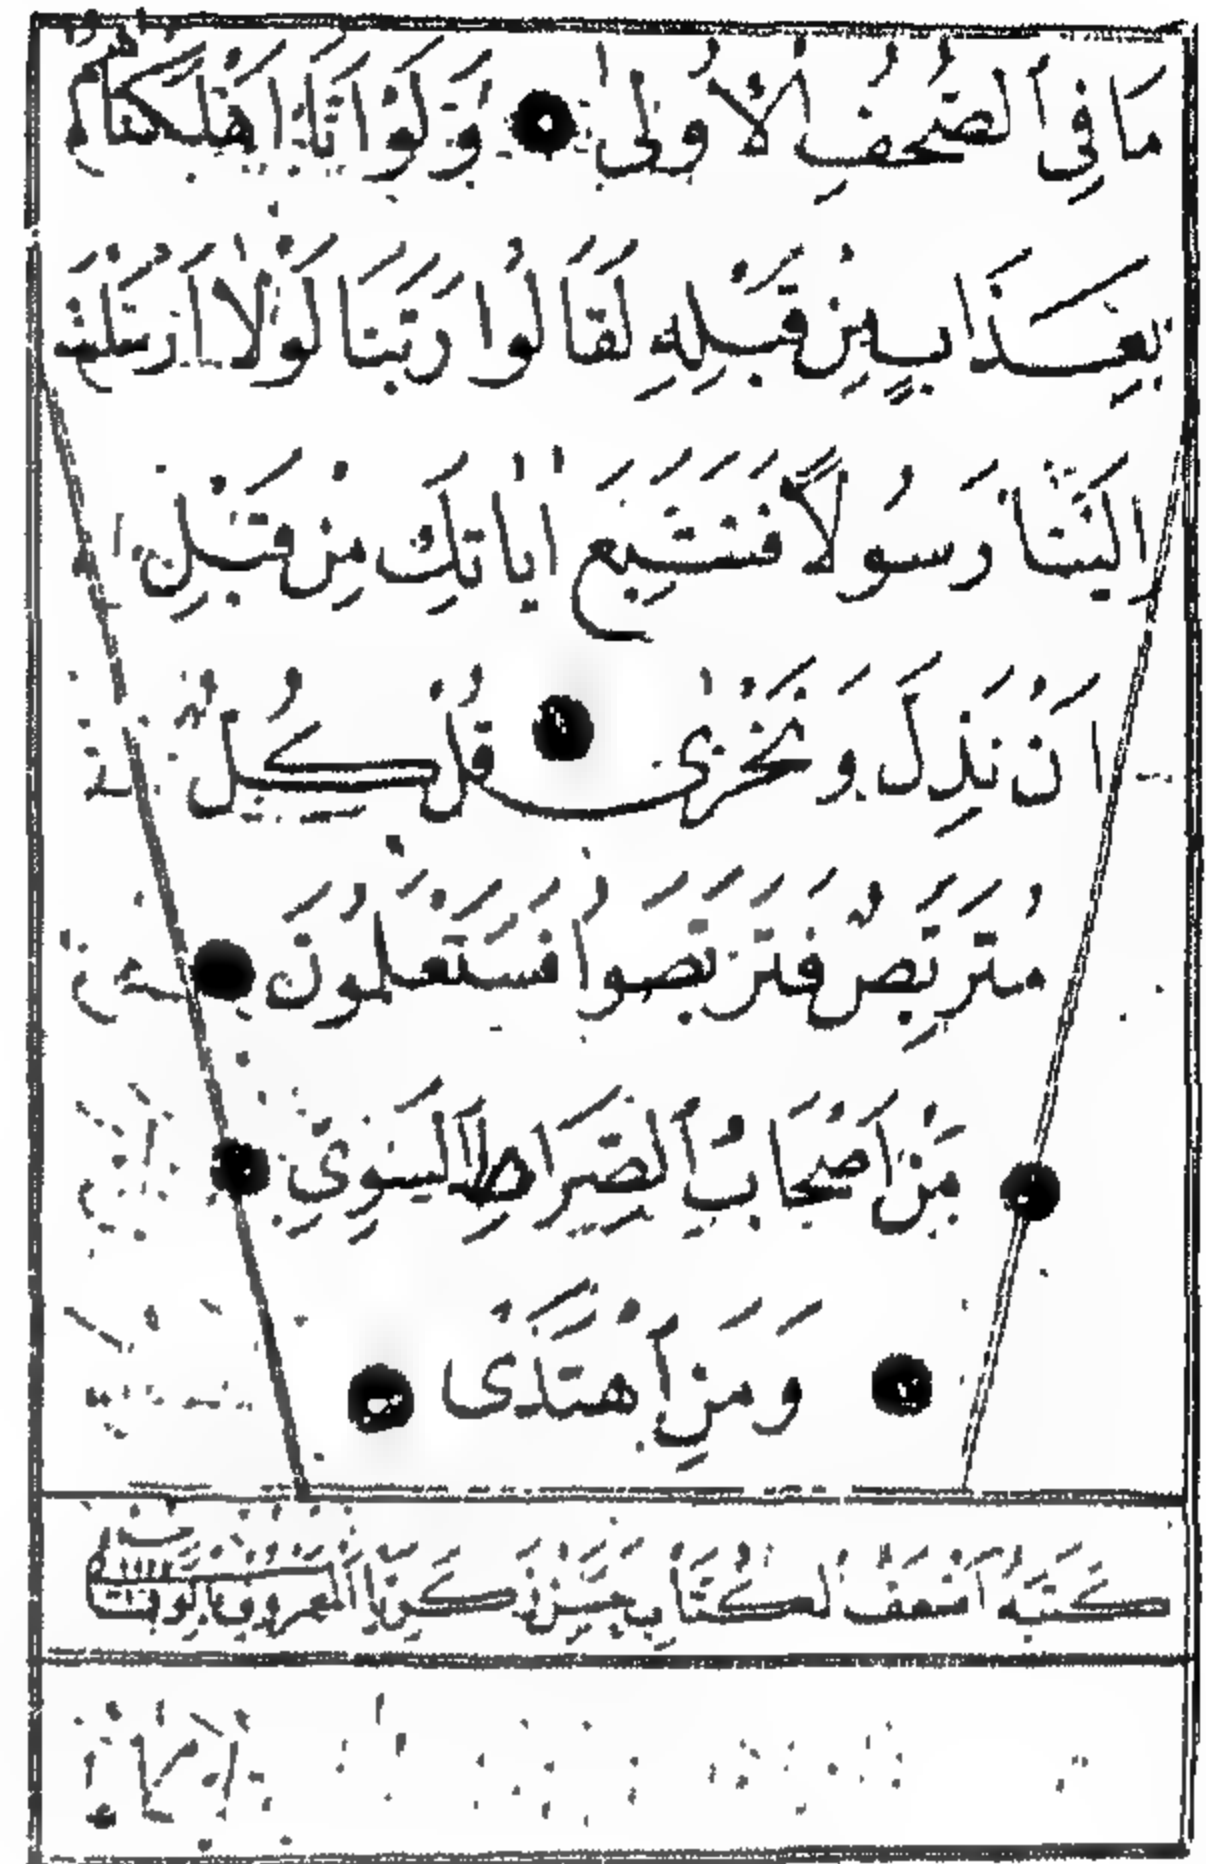 مَا فِي الصُّحُفِ الْأُولَىٰ وَلَوْ اَنَّا اَهْلَكْنَاهُمْ
بِعَذَابٍ مِنْ قَبْلِهِ لَقَالُوا رَبَّنَا لَوْلَا اَرْسَلْتَ
اِلَيْنَا رَسُولًا فَنَتَّبِعَ اٰيَاتِكَ مِنْ قَبْلِ
اَنْ نَذِلَّ وَنَخْزٰى قُلْ كُلٌّ
مُتَرَبِّصٌ فَتَرَبَّصُوا فَسَتَعْلَمُونَ
مَنْ اَصْحَابُ الصِّرَاطِ السَّوِيِّ
وَمَنِ اهْتَدٰى
كَتَبَهُ اَضْعَفُ الْكُتَّابِ حَسَنْ زَكَرِيَّا الْمَعْرُوفُ